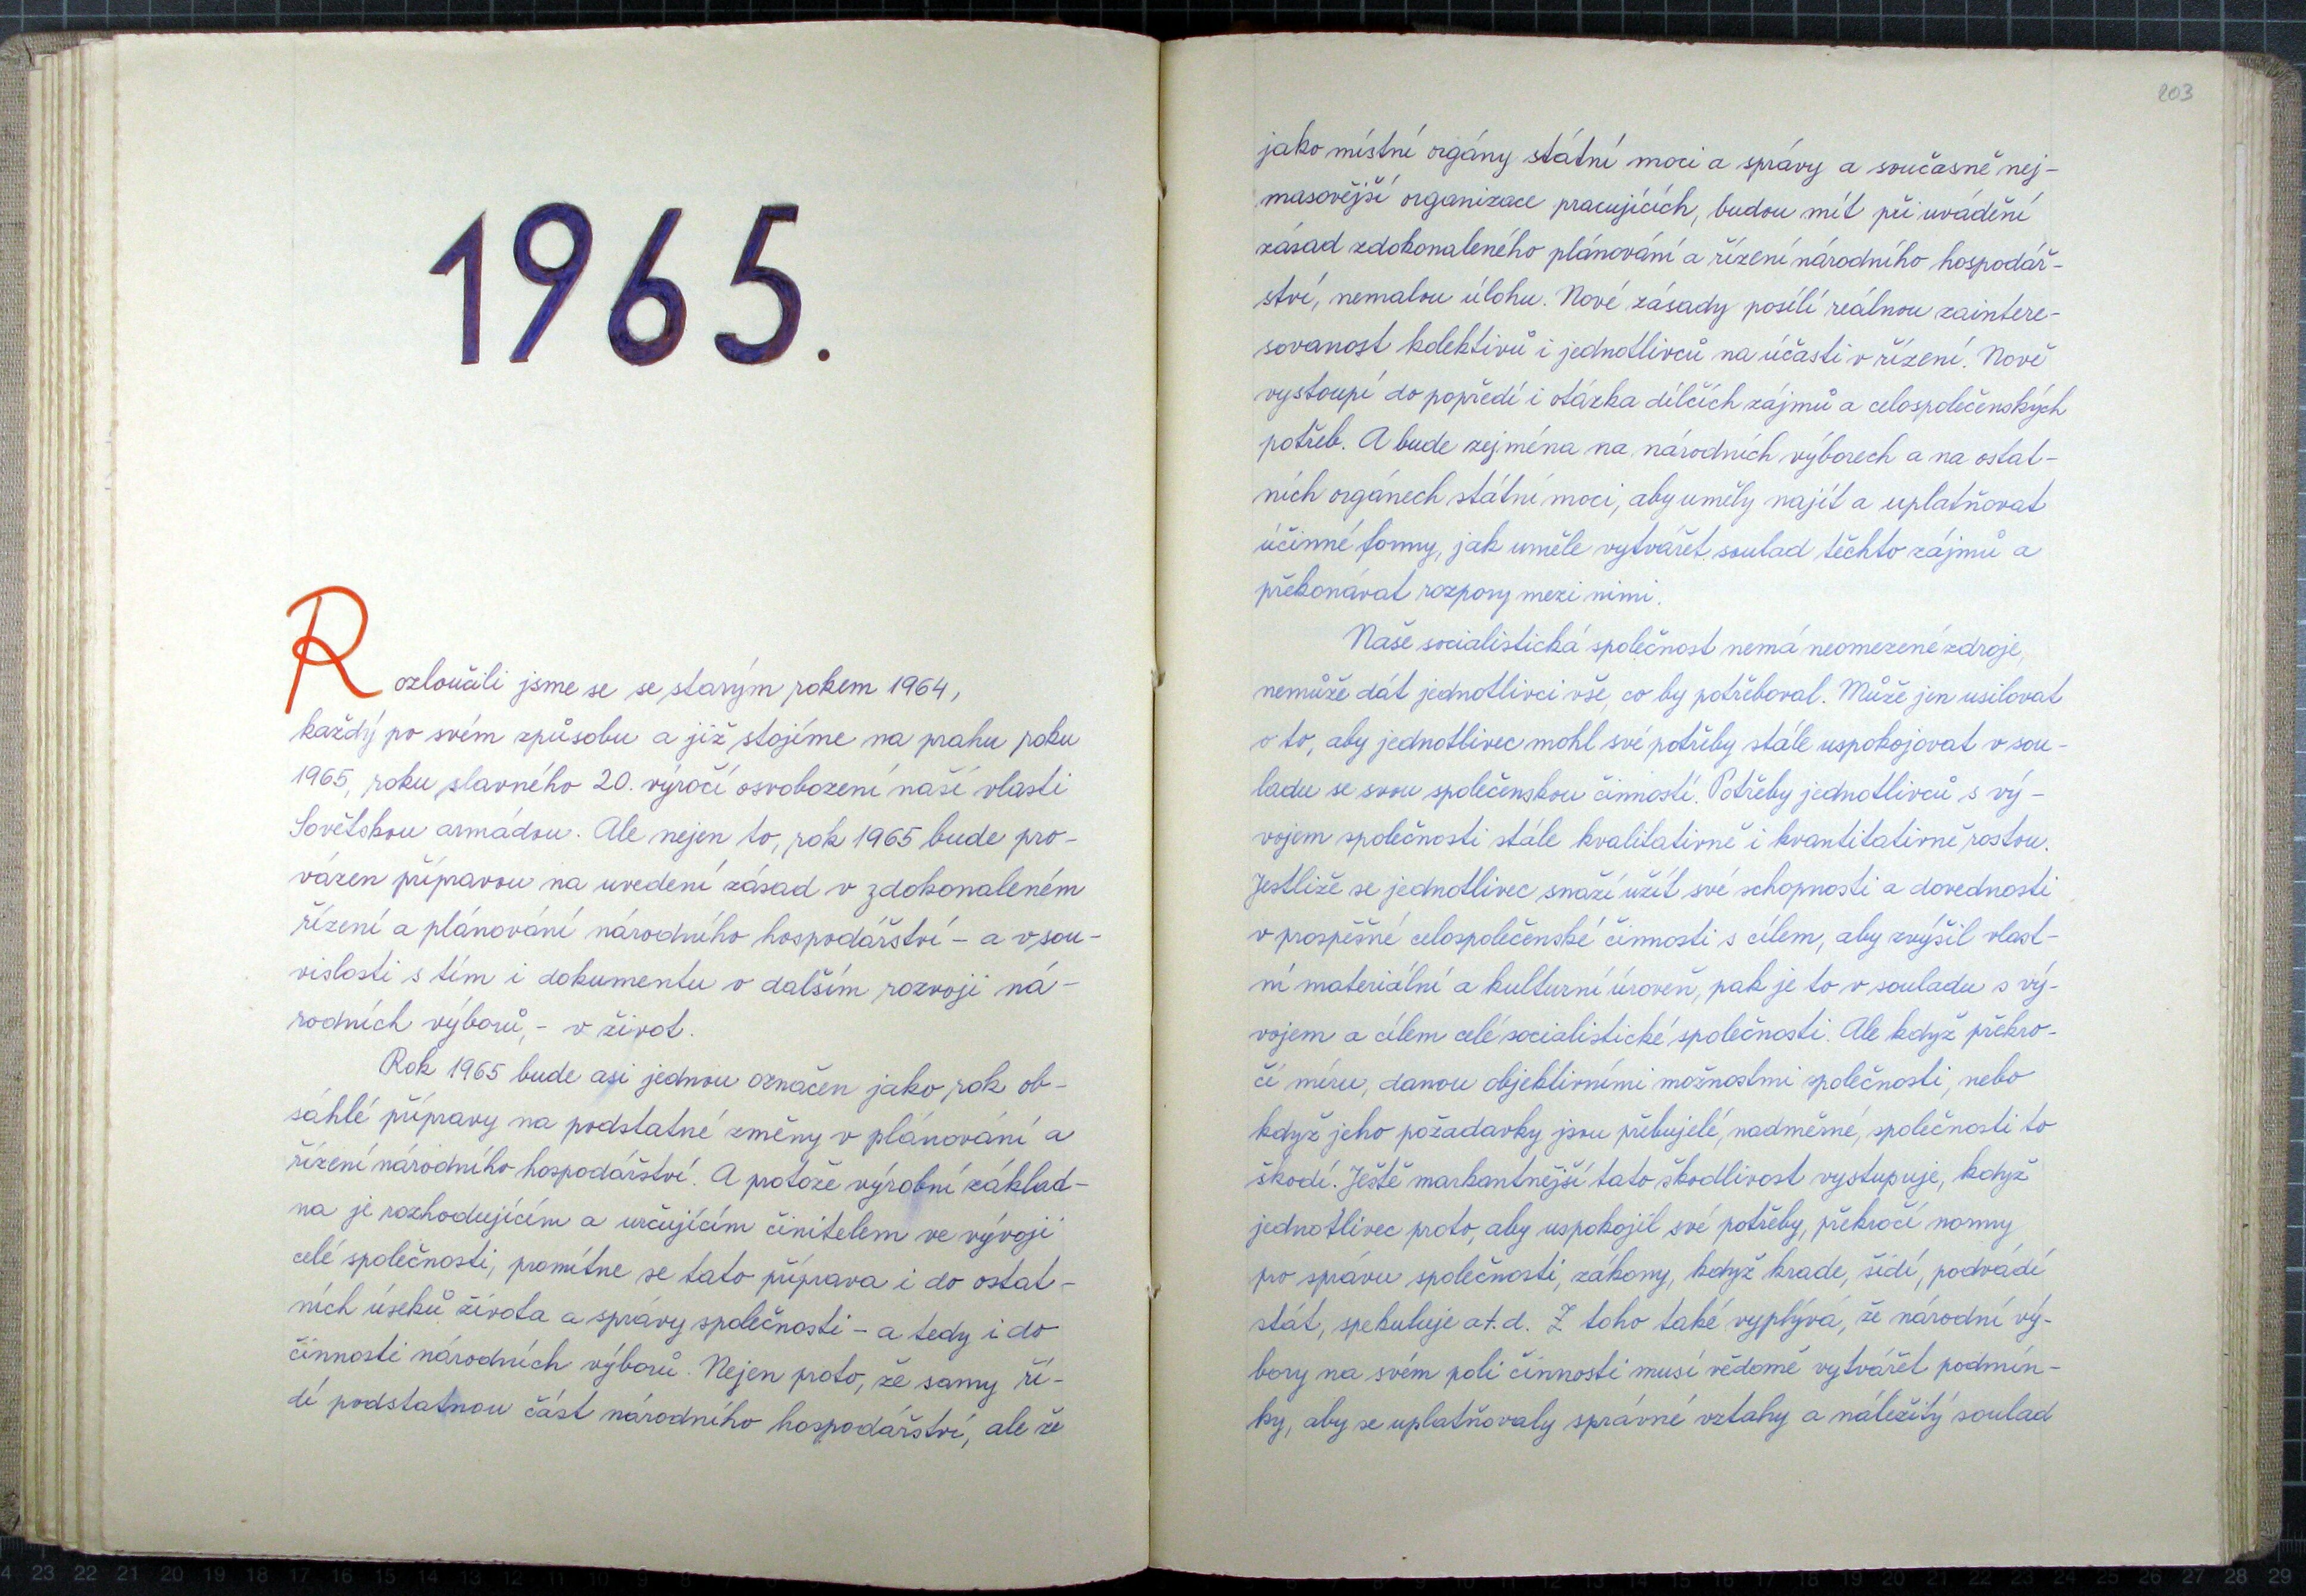 1965.
Rozloučili jsme se se starým rokem 1964,
každý po svém způsobu a již stojíme na prahu roku
1965, roku slavného 20. výročí osvobození naší vlasti
Sovětskou armádou. Ale nejen to, rok 1965 bude pro-
vázen přípravou na uvedení zásad v zdokonaleném
řízení a plánování národního hospodářství - a v sou-
vislosti s tím i dokumentu o dalším rozvoji ná-
rodních výborů, - v život.
Rok 1965 bude asi jednou označen jako rok ob-
sáhlé přípravy na podstatné změny v plánování a
řízení národního hospodářství. A protože výrobní základ-
na je rozhodujícím a určujícím činitelem ve vývoji
celé společnosti, promítne se tato příprava i do ostat-
ních úseků života a správy společnosti - a tedy i do
činnosti národních výborů. Nejen proto, že samy ří-
dí podstatnou část národního hospodářství, ale že
203
jako místní orgány státní moci a správy a současně nej-
masovější organizace pracujících, budou mít při uvádění
zásad zdokonaleného plánování a řízení národního hospodář-
ství, nemalou úlohu. Nové zásady posílí reálnou zaintere-
sovanost kolektivů i jednotlivců na účasti v řízení. Nově
vystoupí do popředí i otázka dílčích zájmů a celospolečenských
potřeb. A bude zejména na národních výborech a na ostat-
ních orgánech státní moci, aby uměly najít a uplatňovat
účinné formy, jak uměle vytvářet soulad těchto zájmů a
překonávat rozpory mezi nimi.
Naše socialistická společnost nemá neomezené zdroje,
nemůže dát jednotlivci vše, co by potřeboval. Může jen usilovat
o to, aby jednotlivec mohl své potřeby stále uspokojovat v sou-
ladu se svou společenskou činností. Potřeby jednotlivců s vý-
vojem společnosti stále kvalitativně i kvantitativně rostou.
Jestliže se jednotlivec snaží užít své schopnosti a dovednosti
v prospěšné celospolečenské činnosti s cílem, aby zvýšil vlast-
ní materiální a kulturní úroveň, pak je to v souladu s vý-
vojem a cílem celé socialistické společnosti. Ale když překro-
čí míru, danou objektivními možnostmi společnosti, nebo
když jeho požadavky jsou přebujelé, nadměrné, společnosti to
škodí. Ještě markantnější tato škodlivost vystupuje, když
jednotlivec proto, aby uspokojil své potřeby, překročí normy
pro správu společnosti, zákony, když krade, šidí, podvádí
stát, spekuluje a.t.d. Z toho také vyplývá, že národní vý-
bory na svém poli činnosti musí vědomě vytvářet podmín-
ky, aby se uplatňovaly správné vztahy a náležitý soulad
4 23 22 21 20 19 18 17 16 15 14 13 12 11 10 9 8 7
19 20 21 22 23 24 25 26 27 28 29